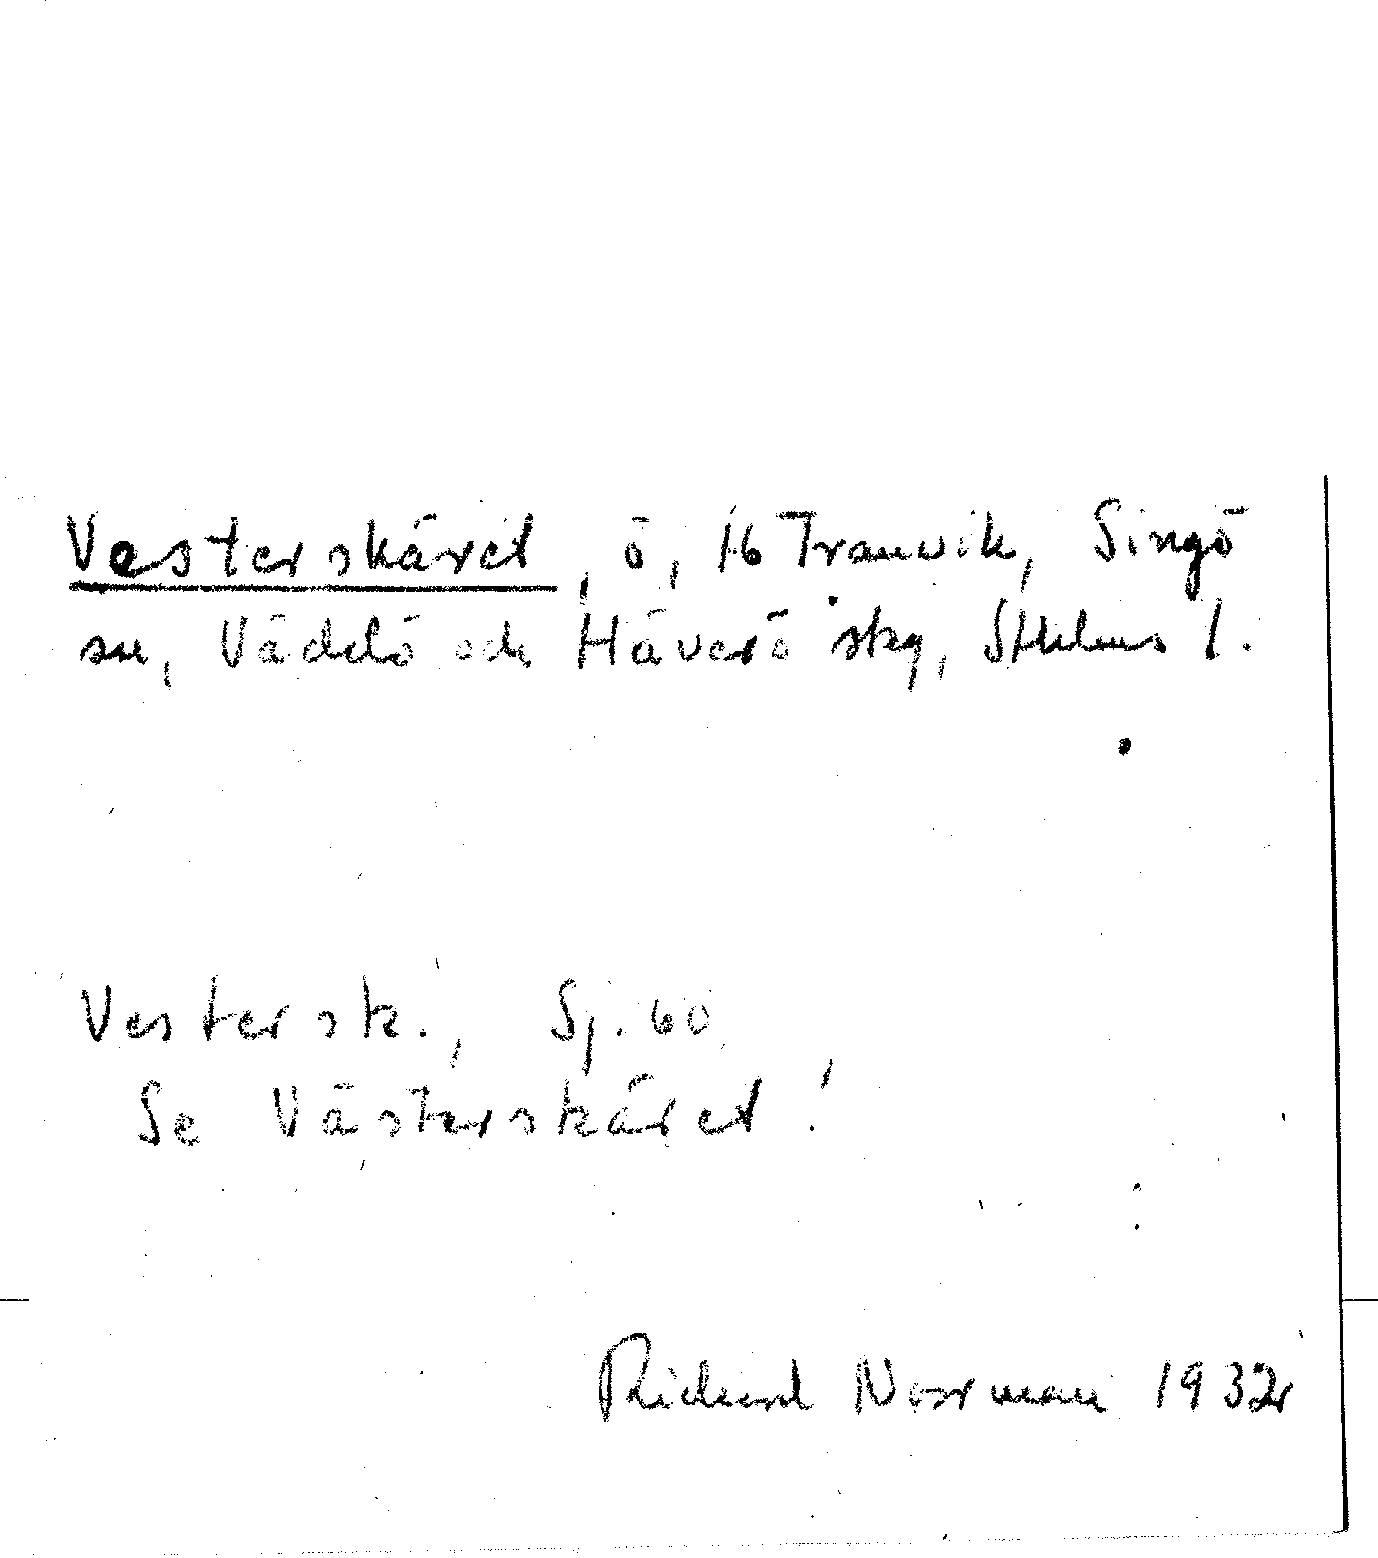 Vesterskäret, ö, Hb Tranvik, Singö
sn, Väddö och Häverö skg, Sthlms l.
Vestersk., Sj. 60
Se Västerskäret!
Richard Norrman 1932